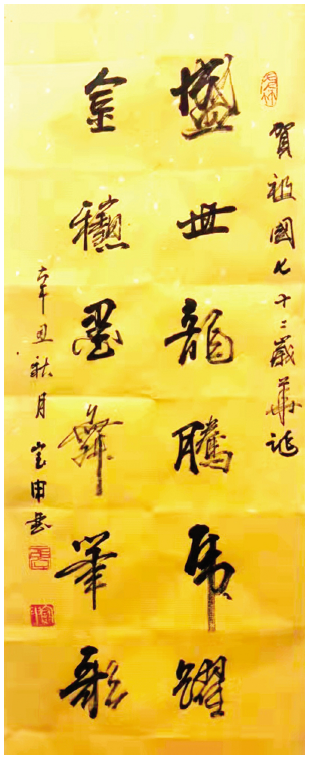 賀祖國七十二歲華誕
盛世龍騰虎躍
金龝墨舞筆歌
辛丑秋月 宝申書